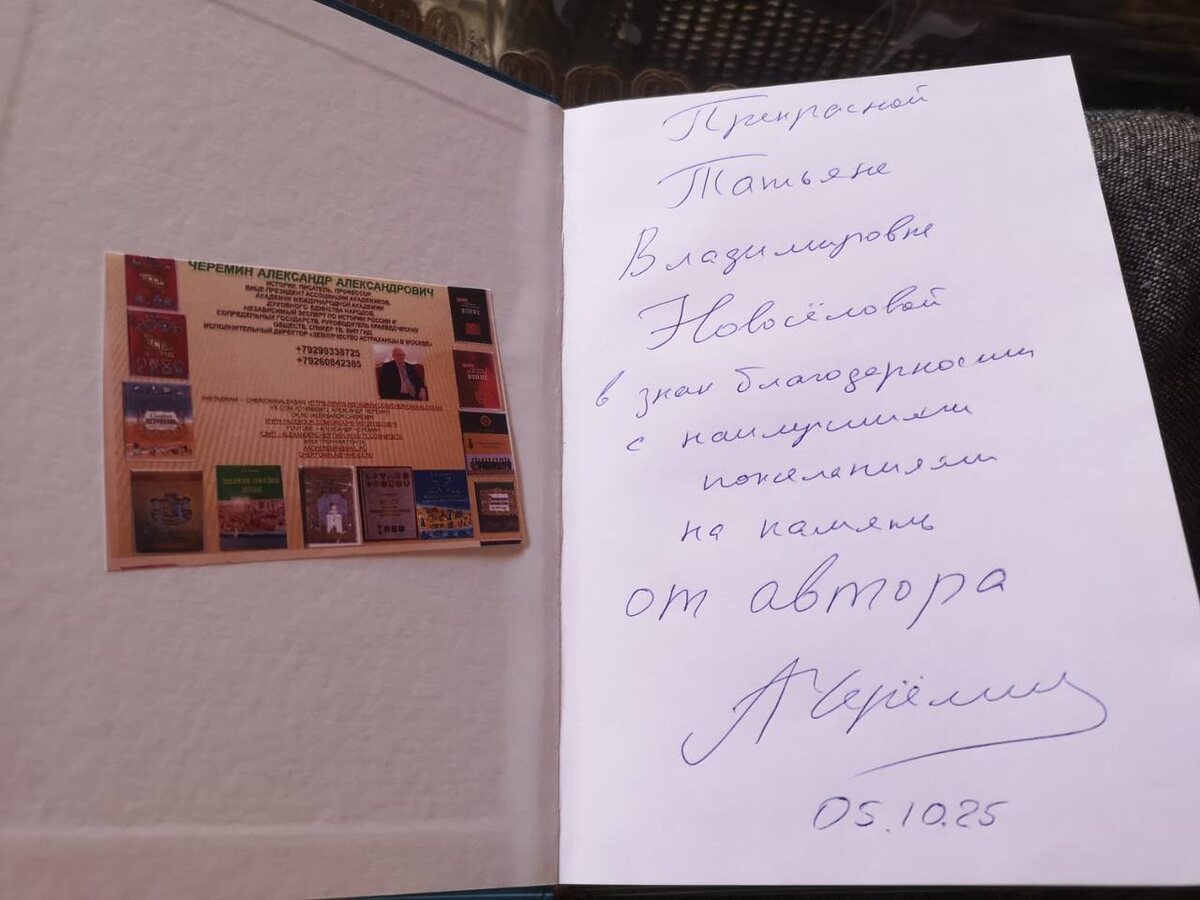 ЧЕРЕМИН АЛЕКСАНДР АЛЕКСАНДРОВИЧ
ИСТОРИК, ПИСАТЕЛЬ, ПРОФЕССОР
ВИЦЕ-ПРЕЗИДЕНТ АССОЦИАЦИИ АКАДЕМИКОВ,
АКАДЕМИК МЕЖДУНАРОДНОЙ АКАДЕМИИ
ДУХОВНОГО ЕДИНСТВА НАРОДОВ,
НЕЗАВИСИМЫЙ ЭКСПЕРТ ПО ИСТОРИИ РОССИИ И
СОПРЕДЕЛЬНЫХ ГОСУДАРСТВ, РУКОВОДИТЕЛЬ КРАЕВЕДЧЕСКИХ
ОБЩЕСТВ, СПИКЕР ТВ, ВИП ГИД,
ИСПОЛНИТЕЛЬНЫЙ ДИРЕКТОР «ЗЕМЛЯЧЕСТВО АСТРАХАНЦЫ В МОСКВЕ»
+79299338725
+79260842385
INSTAGRAM
YOUTUBE – АЛЕКСАНДР ЧЕРЕМИН
ЭЛЕКТРОННАЯ ПОЧТА
Прекрасной
Татьяне
Владимировне
Новосёловой
в знак благодарности
с наилучшими
пожеланиями
на память
от автора
АЧерёмин
05.10.25